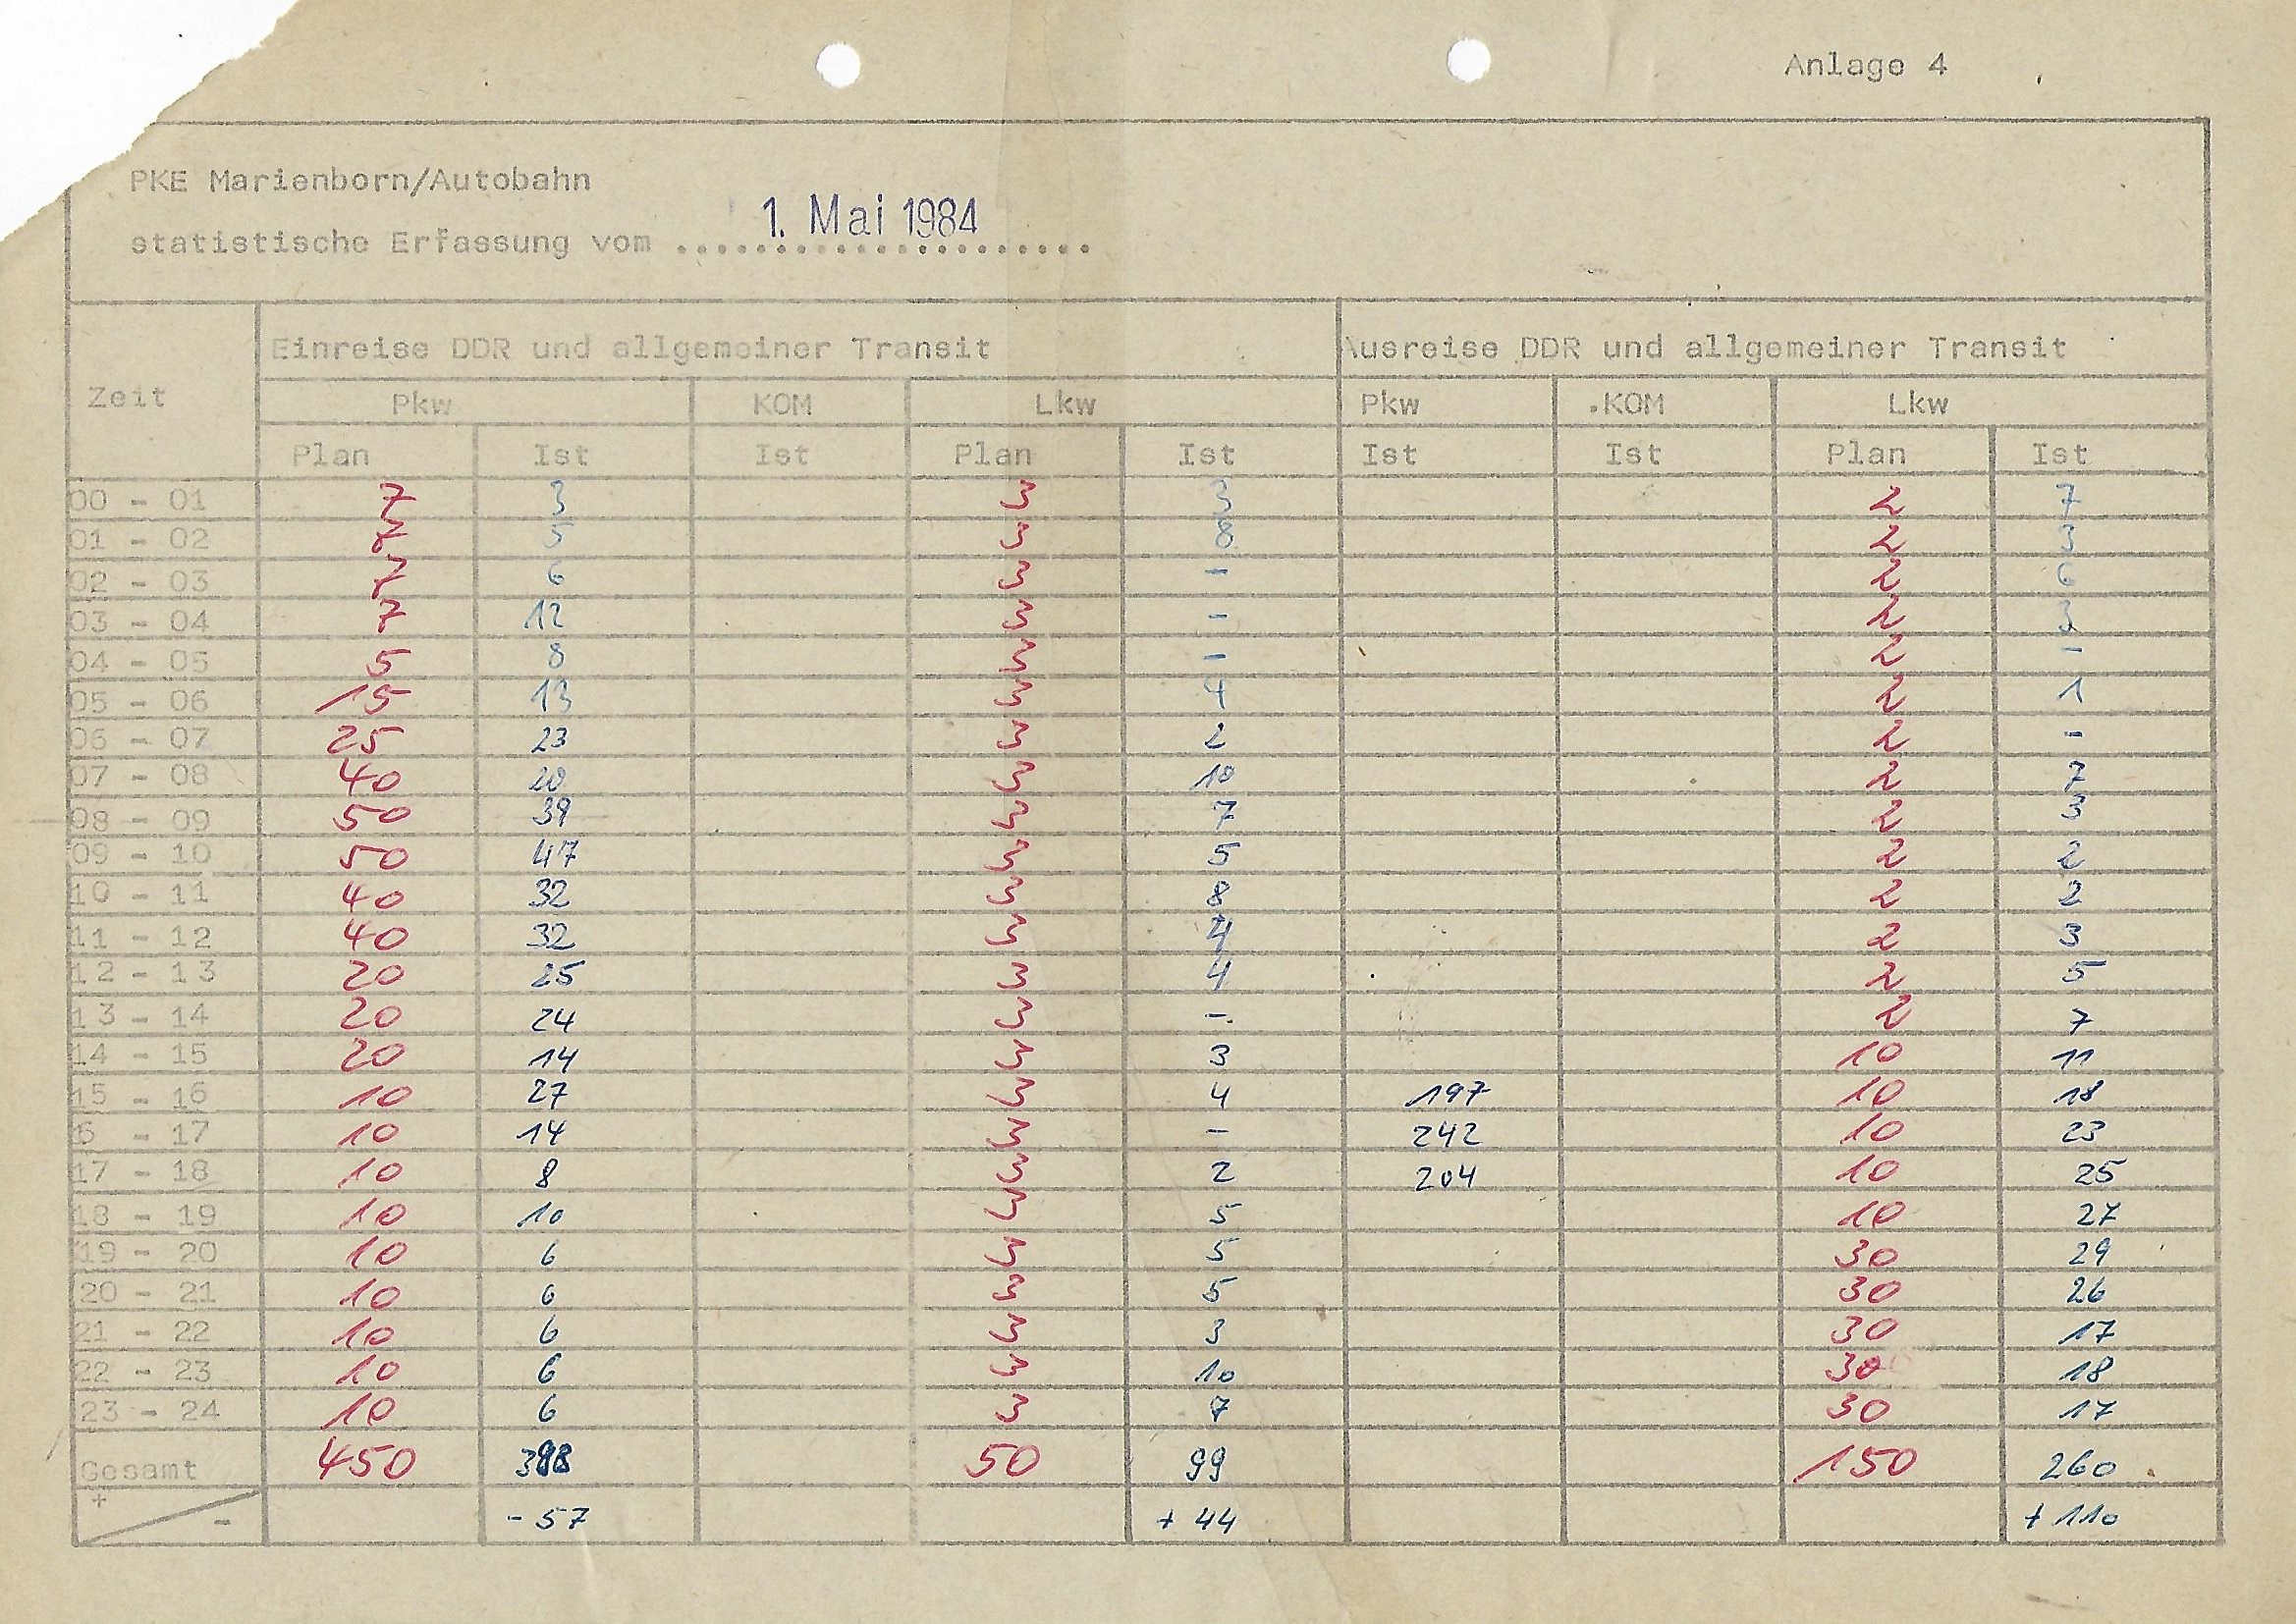 Anlage 4
PKE Marienborn/Autobahn
statistische Erfassung vom 1. Mai 1984
Einreise DDR und allgemeiner Transit Ausreise DDR und allgemeiner Transit
Zeit Pkw KOM Lkw Pkw KOM Lkw
Plan Ist Ist Plan Ist Ist Ist Plan Ist
00 - 01 7 3 3 3 2 7
01 - 02 7 5 3 8 2 3
02 - 03 7 6 3 - 2 6
03 - 04 7 12 3 - 2 3
04 - 05 5 8 3 - 2 -
05 - 06 15 13 3 4 2 1
06 - 07 25 23 3 2 2 -
07 - 08 40 20 3 10 2 7
08 - 09 50 39 3 7 2 3
09 - 10 50 47 3 5 2 2
10 - 11 40 32 3 8 2 2
11 - 12 40 32 3 4 2 3
12 - 13 20 25 3 4 2 5
13 - 14 20 24 3 - 2 7
14 - 15 20 14 3 3 10 11
15 - 16 10 27 3 4 197 10 18
6 - 17 10 14 3 - 242 10 23
17 - 18 10 8 3 2 204 10 25
18 - 19 10 10 3 5 10 27
19 - 20 10 6 3 5 30 29
20 - 21 10 6 3 5 30 26
21 - 22 10 6 3 3 30 17
22 - 23 10 6 3 10 30 18
23 - 24 10 6 3 7 30 17
Gesamt 450 50 99 150 260
+ - - 57 + 44 + 110